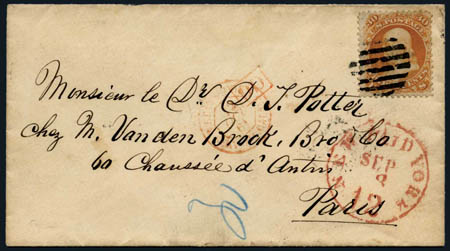 30 U.S. POSTAGE 30
Monsieur le Dr. D. J. Potter
chez M. Vanden Brock, Bro & Co
60 Chaussée d'Antin
Paris
PAID
NEW YORK
SEP
12